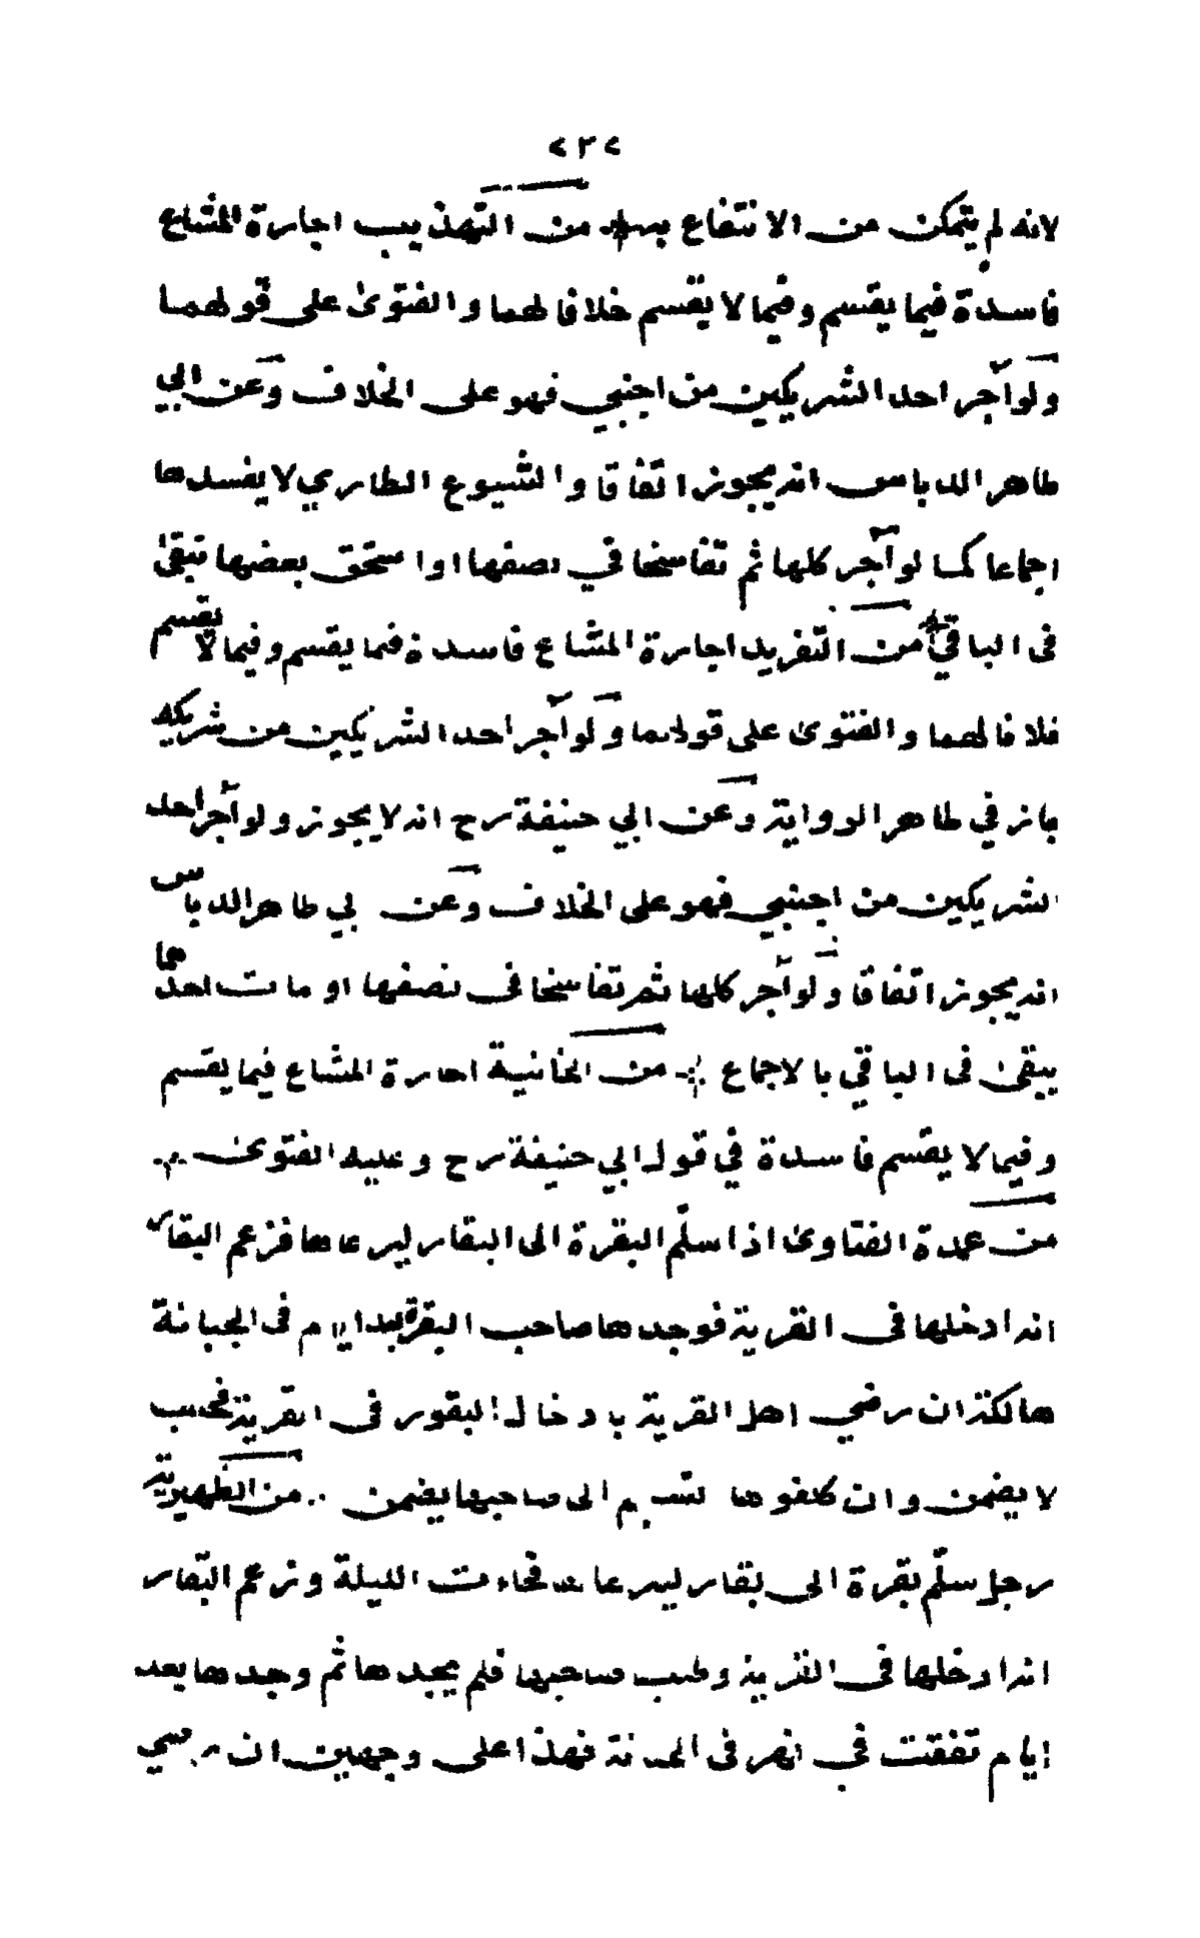 ٢٣٢
لانه لم يتمكن من الانتفاع بها * من التهذيب اجارة المشاع
فاسدة فيما يقسم وفيما لا يقسم خلافا لهما والفتوى على قولهما
ولو آجر احد الشريكين من اجنبي فهو على الخلاف وعن ابي
طاهر الدباس انه يجوز اتفاقا والشيوع الطاري لا يفسدها
اجماعا كما لو آجر كلها ثم تفاسخا في نصفها او استحق بعضها تبقى
فى الباقي * من التفريد اجارة المشاع فاسدة فيما يقسم وفيما لا يقسم
خلافا لهما والفتوى على قولهما ولو آجر احد الشريكين من شريكه
جاز في ظاهر الرواية وعن ابي حنيفة رح انه لا يجوز ولو آجر احد
الشريكين من اجنبي فهو على الخلاف وعن ابي طاهر الدباس
انه يجوز اتفاقا ولو آجر كلها ثم تفاسخا فى نصفها او مات احدهما
يبقى فى الباقي بالاجماع * من الخانية اجارة المشاع فيما يقسم
وفيما لا يقسم فاسدة في قول ابي حنيفة رح وعليه الفتوى *
من عمدة الفتاوى اذا سلّم البقرة الى البقار ليرعاها فزعم البقار
انه ادخلها فى القرية فوجدها صاحب البقرة بعد ايام فى الجبانة
هالكة ان رضي اهل القرية بادخال البقور فى القرية فحسب
لا يضمن وان كلفوها الى صاحبها يضمن .. من الظهيرية
رجل سلّم بقرة الى بقار ليرعاها فجاءت الليلة وزعم البقار
انه ادخلها فى القرية وطلب صاحبها فلم يجدها ثم وجدها بعد
ايام تفقت في نهر فى فهذا على وجهين ان رضي